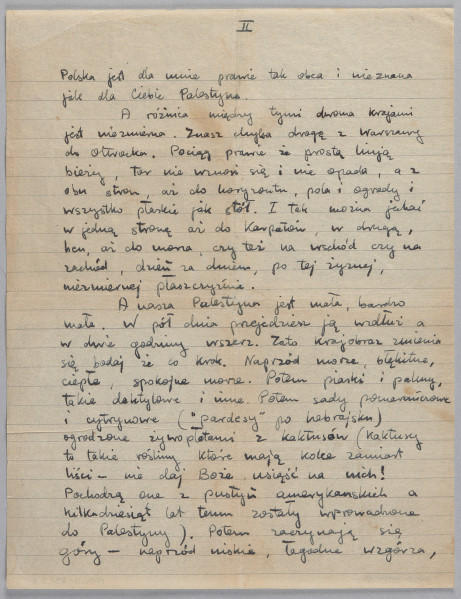 II
Polska jest dla mnie prawie tak obca i nieznana
jak dla Ciebie Palestyna.
A różnica między tymi dwoma krajami
jest niezmierna. Znasz chyba drogę z Warszawy
do Otwocka. Pociąg prawie że prostą linją
bieży, tor nie wznosi się i nie opada, a z
obu stron, aż do horyzontu, pola i ogrody i
wszystko płaskie jak stół. I tak można jechać
w jedną stronę aż do Karpatów, w drugą,
hen, aż do morza, czy też na wschód czy na
zachód, dzień za dniem, po tej żyznej,
niezmiernej płaszczyźnie.
A nasza Palestyna jest mała, bardzo
mała. W pół dnia przejedziesz ją wzdłuż a
w dwie godziny wszerz. Zato krajobraz zmienia
się bodaj że co krok. Naprzód morze, błękitne,
ciepłe, spokojne morze. Potem piaski i palmy,
takie daktylowe i inne. Potem sady pomarańczowe
i cytrynowe ("pardesy" po hebrajsku)
ogrodzone żywopłotami z kaktusów (Kaktusy
to takie rośliny które mają kolce zamiast
liści — nie daj Boże usiąść na nich!
Pochodzą one z pustyń amerykańskich a
kilkadziesiąt lat temu zostały wprowadzone
do Palestyny). Potem zaczynają się
góry — naprzód niskie, łagodne wzgórza,